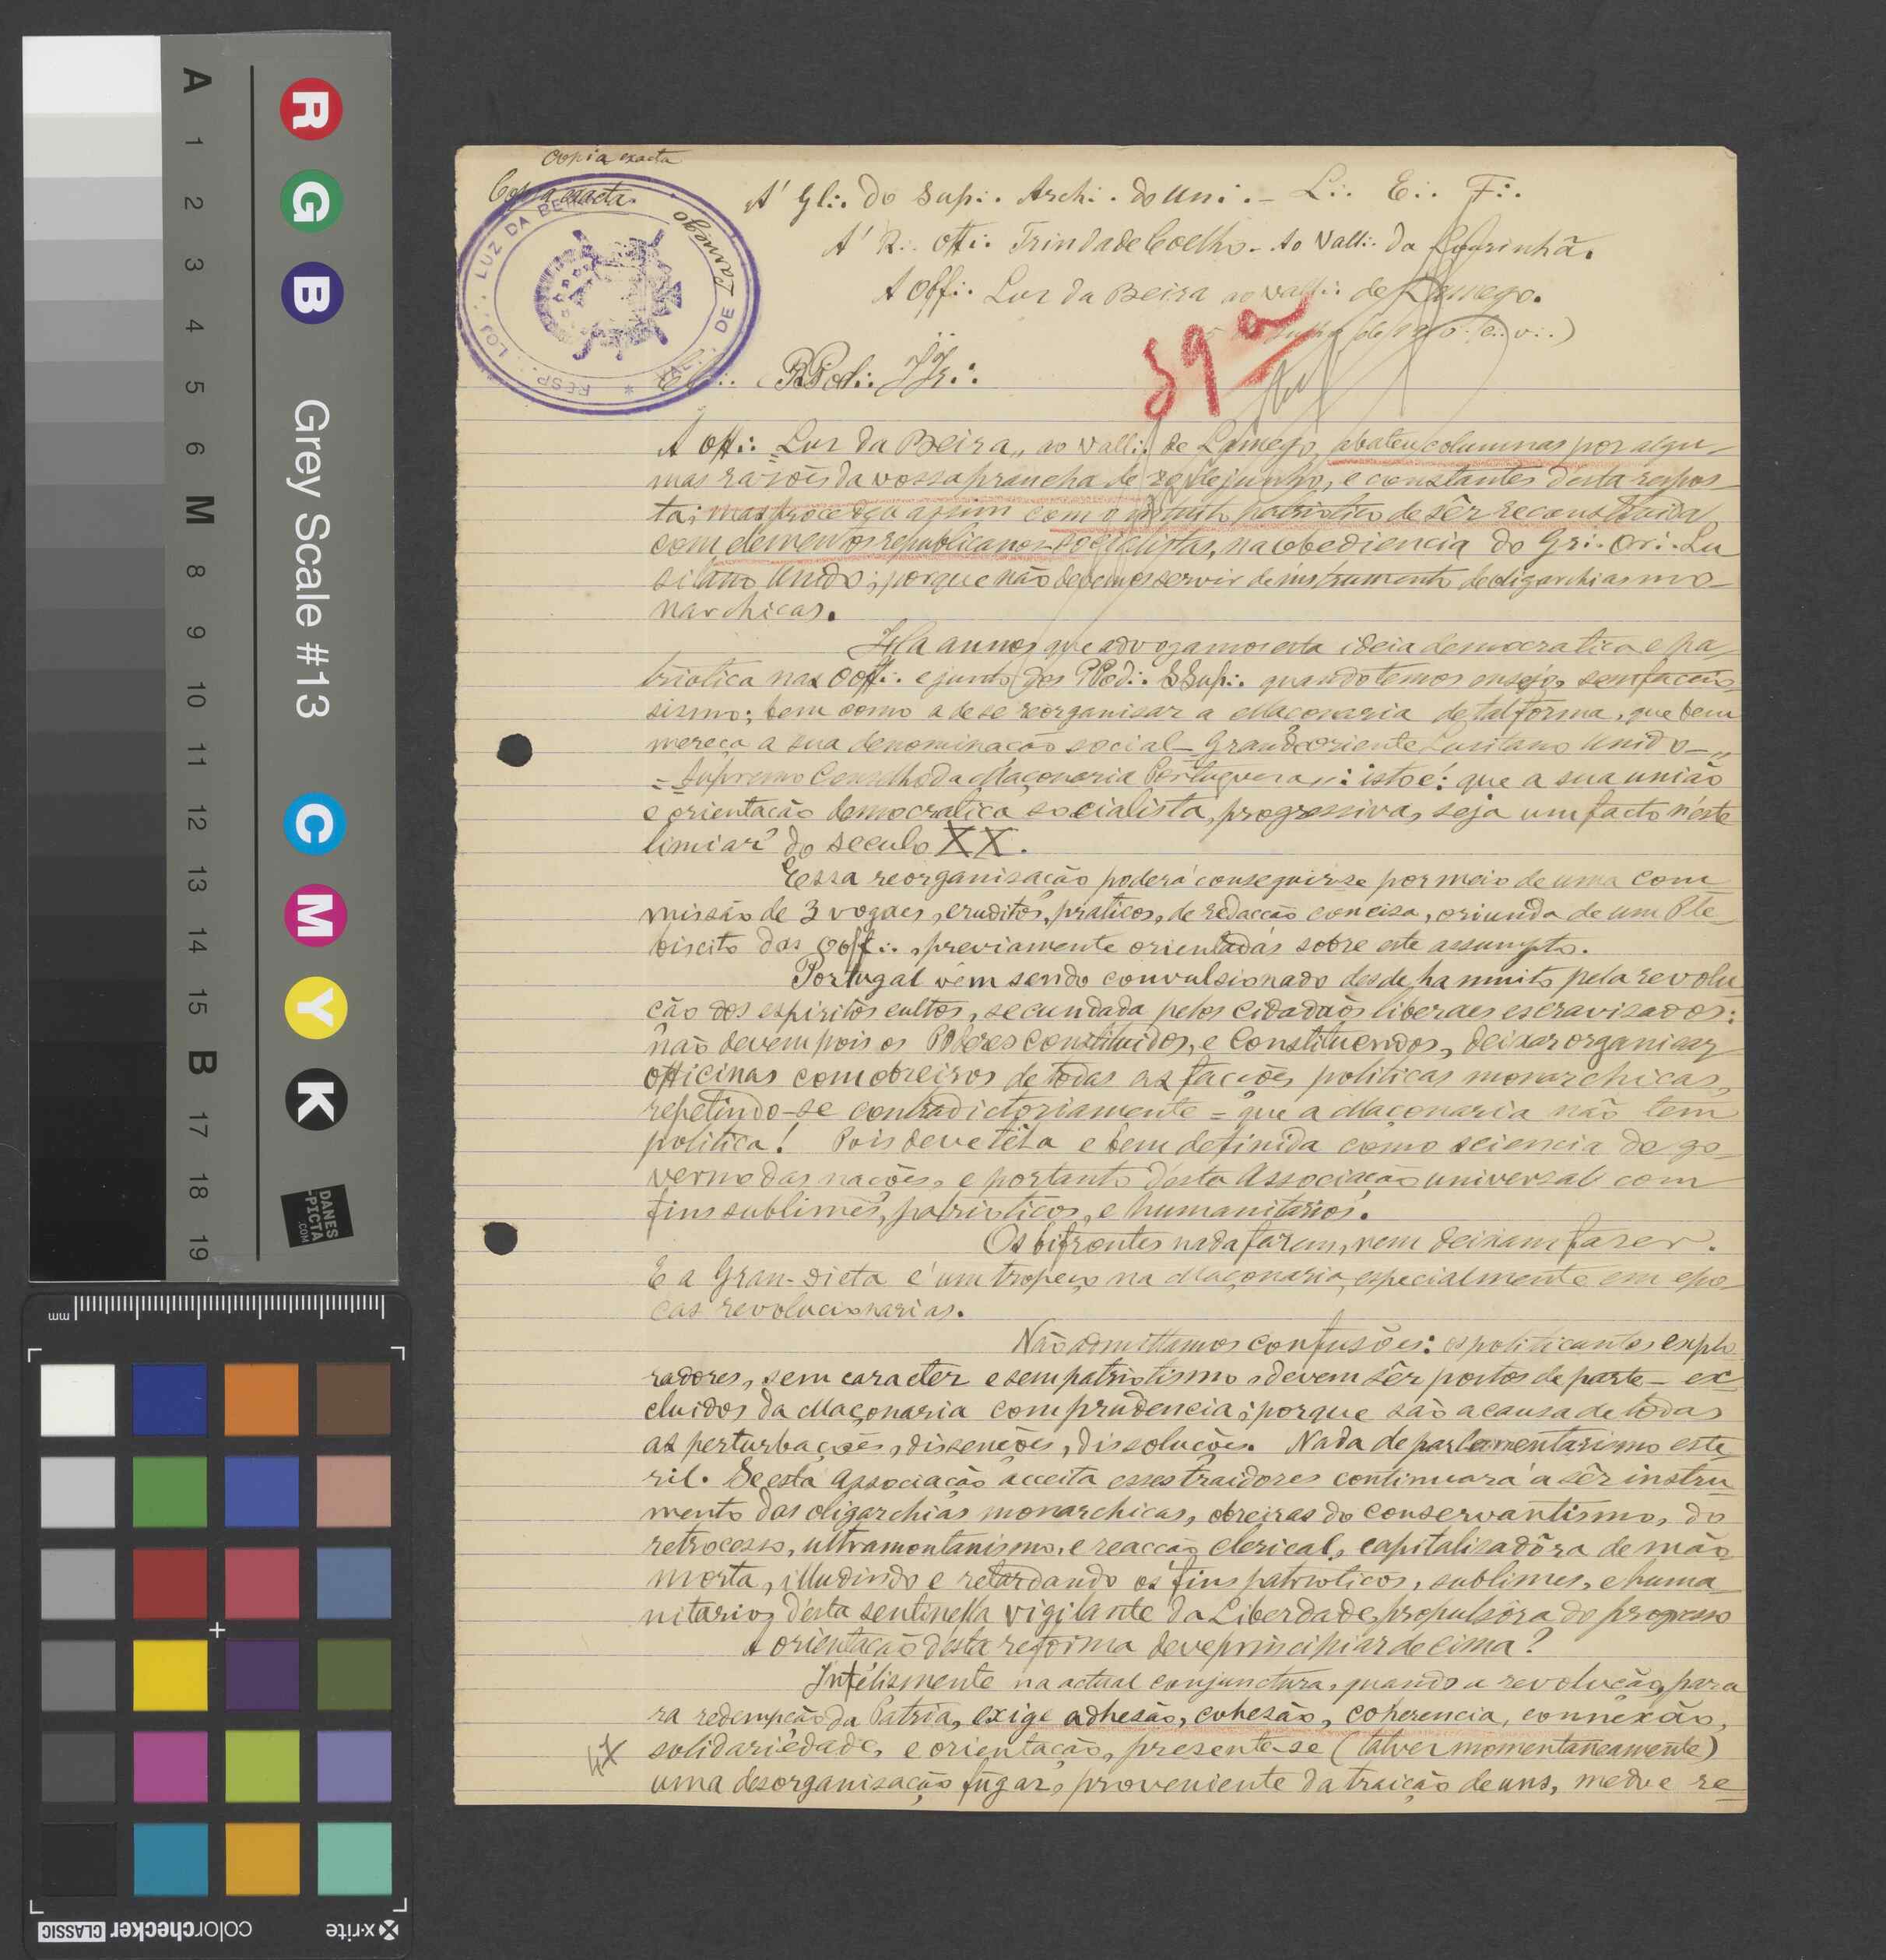 Copia exacta
Copia exacta
A' Gl∴ do Sup∴ Arch∴ do Uni∴ – L∴ E∴ F∴
A' R∴ Off∴ Trindade Coelho – Ao Vall∴ da Lourinhã.
A Off∴ Luz da Beira ao Vall∴ de Lamego.
de Lamego
RESP∴ LOJ∴ LUZ DA BEIRA
VAL∴ DE
39a
(e∴ v∴)
PPod∴ IIr∴
A Off∴ "Luz da Beira", ao Vall∴ de Lamego, abateu columnas por algu-
mas razões da vossa prancha de de junho, e constantes desta respos-
ta; mas procedeu assim com o intuito patriotico de sêr reconstruida
com elementos republicanos-socialistas, na obediencia do Gr∴ Ori∴ Lu-
sitano Unido; porque não devemos servir de instrumento de oligarchias mo-
narchicas.
Ha annos que advogamos esta ideia democratica e pa-
triotica nas OOff∴ e junto dos PPod∴ SSup∴ quando temos ensejo, sem facciu-
sismo; bem como a de se reorganisar a Maçonaria de tal forma, que bem
mereça a sua denominação social – Grande Oriente Lusitano Unido – "
= Supremo Conselho da Maçonaria Portugueza,,: isto é: que a sua união
e orientação democratica socialista, progressiva, seja um facto n'este
limiar do seculo XX.
Essa reorganisação poderá conseguir-se por meio de uma com-
missão de 3 vogaes, eruditos, praticos, de redacção concisa, oriunda de um Ple-
biscito das OOff∴, previamente orientadas sobre este assumpto.
Portugal vem sendo convulsionado desde ha muito pela revolu-
ção dos espiritos cultos, secundada pelos cidadãos liberaes escravisados:
não devem pois os Poderes constituidos, e Constituendos, deixar organisar
officinas com obreiros de todas as facções politicas monarchicas,
repetindo-se contradictoriamente = que a Maçonaria não tem
politica! Pois deve têl-a e bem definida como sciencia de go-
verno das nações, e portanto d'esta Associação universal com
fins sublimes, patrioticos, e humanitarios.
Os bifrontes nada fazem, nem deixam fazer.
E a Gran-Dieta é um tropeço na Maçonaria, especialmente em epo-
cas revolucionarias.
Não admittamos confusões: os politicantes explo-
radores, sem caracter e sem patriotismo, devem sêr postos de parte – ex-
cluidos da Maçonaria com prudencia; porque são a causa de todas
as perturbações, dissenções, dissoluções. Nada de parlamentarismo este-
ril. Se esta Associação acceita esses traidores continuará a sêr instru-
mento das oligarchias monarchicas, obreiras do conservantismo, do
retrocesso, ultramontanismo, e reacção clerical, capitalisadôra de mão
morta, illudindo e retardando os fins patrioticos, sublimes, e huma-
nitarios d'esta sentinella vigilante da Liberdade, propulsôra do progresso
A orientação d'esta reforma deve principiar de cima?
Infélismente na actual conjunctura, quando a revolução, para
ra redempção da Patria, exige adhesão, cohesão, coherencia, connexão,
solidariedade, e orientação, presente-se (talvez momentaneamente)
uma desorganisação fugaz, proveniente da traição de uns, medo e re-
A 1 2 3 4 5 6 M 8 9 10 11 12 13 14 15 B 17 18 19
R G B
Grey Scale #13
C M Y K
DANES
-PICTA
.COM
mm
x-rite
colorchecker CLASSIC